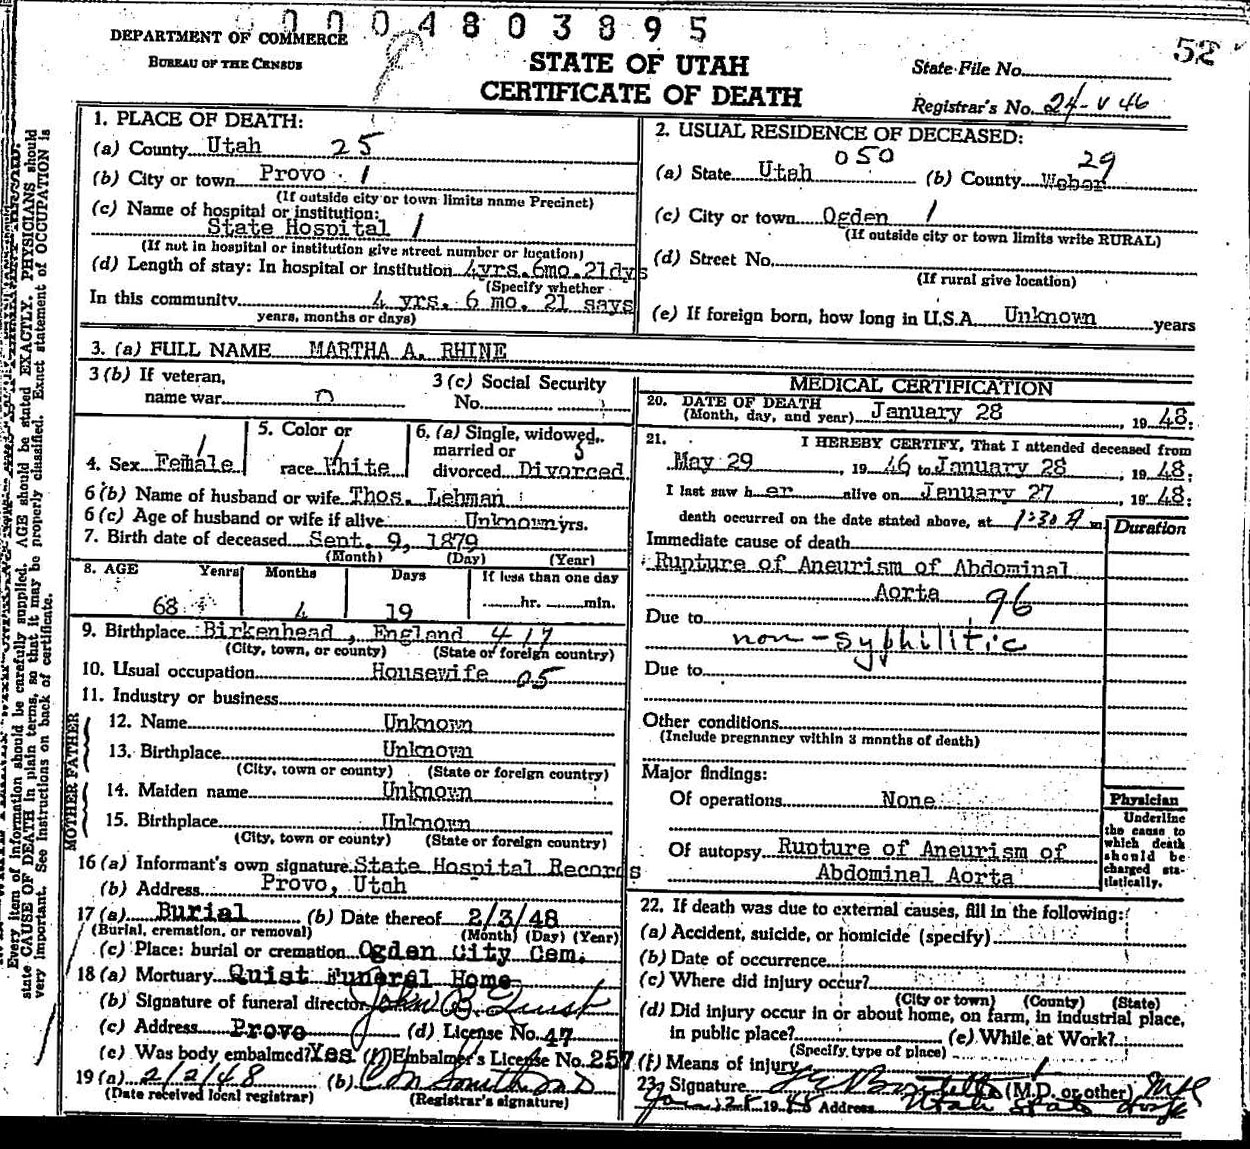 0004803895
52
DEPARTMENT OF COMMERCE
BUREAU OF THE CENSUS
STATE OF UTAH
CERTIFICATE OF DEATH
State File No.
Registrar's No. 24-V 46
1. PLACE OF DEATH:
(a) County Utah 25
(b) City or town Provo 1
(If outside city or town limits name Precinct)
(c) Name of hospital or institution:
State Hospital 1
(If not in hospital or institution give street number or location)
(d) Length of stay: In hospital or institution 4yrs.6mo.21dys
(Specify whether
In this community 4 yrs. 6 mo. 21 says
years, months or days)
2. USUAL RESIDENCE OF DECEASED:
(a) State Utah 050 (b) County Weber 29
(c) City or town Ogden 1
(If outside city or town limits write RURAL)
(d) Street No.
(If rural give location)
(e) If foreign born, how long in U.S.A. Unknown years
3. (a) FULL NAME MARTHA A. RHINE
3 (b) If veteran,
name war
3 (c) Social Security
No.
4. Sex Female
5. Color or
race White
6. (a) Single, widowed,
married or
divorced Divorced
6 (b) Name of husband or wife Thos. Lehman
6 (c) Age of husband or wife if alive Unknown yrs.
7. Birth date of deceased Sept. 9, 1879
(Month) (Day) (Year)
8. AGE Years Months Days If less than one day
68 4 19 hr. min.
9. Birthplace Birkenhead, England 417
(City, town, or county) (State or foreign country)
10. Usual occupation Housewife 05
11. Industry or business
FATHER
12. Name Unknown
13. Birthplace Unknown
(City, town or county) (State or foreign country)
MOTHER
14. Maiden name Unknown
15. Birthplace Unknown
(City, town or county) (State or foreign country)
16 (a) Informant's own signature State Hospital Records
(b) Address Provo, Utah
17 (a) Burial (b) Date thereof 2/3/48
(Burial, cremation, or removal) (Month) (Day) (Year)
(c) Place: burial or cremation Ogden City Cem.
18 (a) Mortuary Quist Funeral Home
(b) Signature of funeral director John B. Quist
(c) Address Provo (d) License No. 47
(e) Was body embalmed? Yes (f) Embalmer's License No. 257
19 (a) 2/2/48 (b)
(Date received local registrar) (Registrar's signature)
MEDICAL CERTIFICATION
20. DATE OF DEATH
(Month, day, and year) January 28, 1948.
21. I HEREBY CERTIFY, That I attended deceased from
May 29, 1946 to January 28, 1948.
I last saw her alive on January 27, 1948.
death occurred on the date stated above, at 1:30 A m
Duration
Immediate cause of death
Rupture of Aneurism of Abdominal
Aorta 96
Due to
non-syphilitic
Due to
Other conditions
(Include pregnancy within 3 months of death)
Major findings:
Of operations None
Of autopsy Rupture of Aneurism of
Abdominal Aorta
Physician
Underline
the cause to
which death
should be
charged sta-
tistically.
22. If death was due to external causes, fill in the following:
(a) Accident, suicide, or homicide (specify)
(b) Date of occurrence
(c) Where did injury occur?
(City or town) (County) (State)
(d) Did injury occur in or about home, on farm, in industrial place,
in public place? (e) While at Work?
(Specify type of place)
(f) Means of injury
23. Signature (M.D. or other)
Jan. 28 1948 Address Utah State Hosp
Every item of information should be carefully supplied. AGE should be stated EXACTLY. PHYSICIANS should
state CAUSE OF DEATH in plain terms, so that it may be properly classified. Exact statement of OCCUPATION is
very important. See instructions on back of certificate.